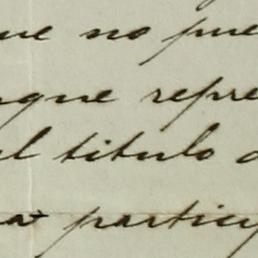 ue no pue
que repre
el titulo d
at particip